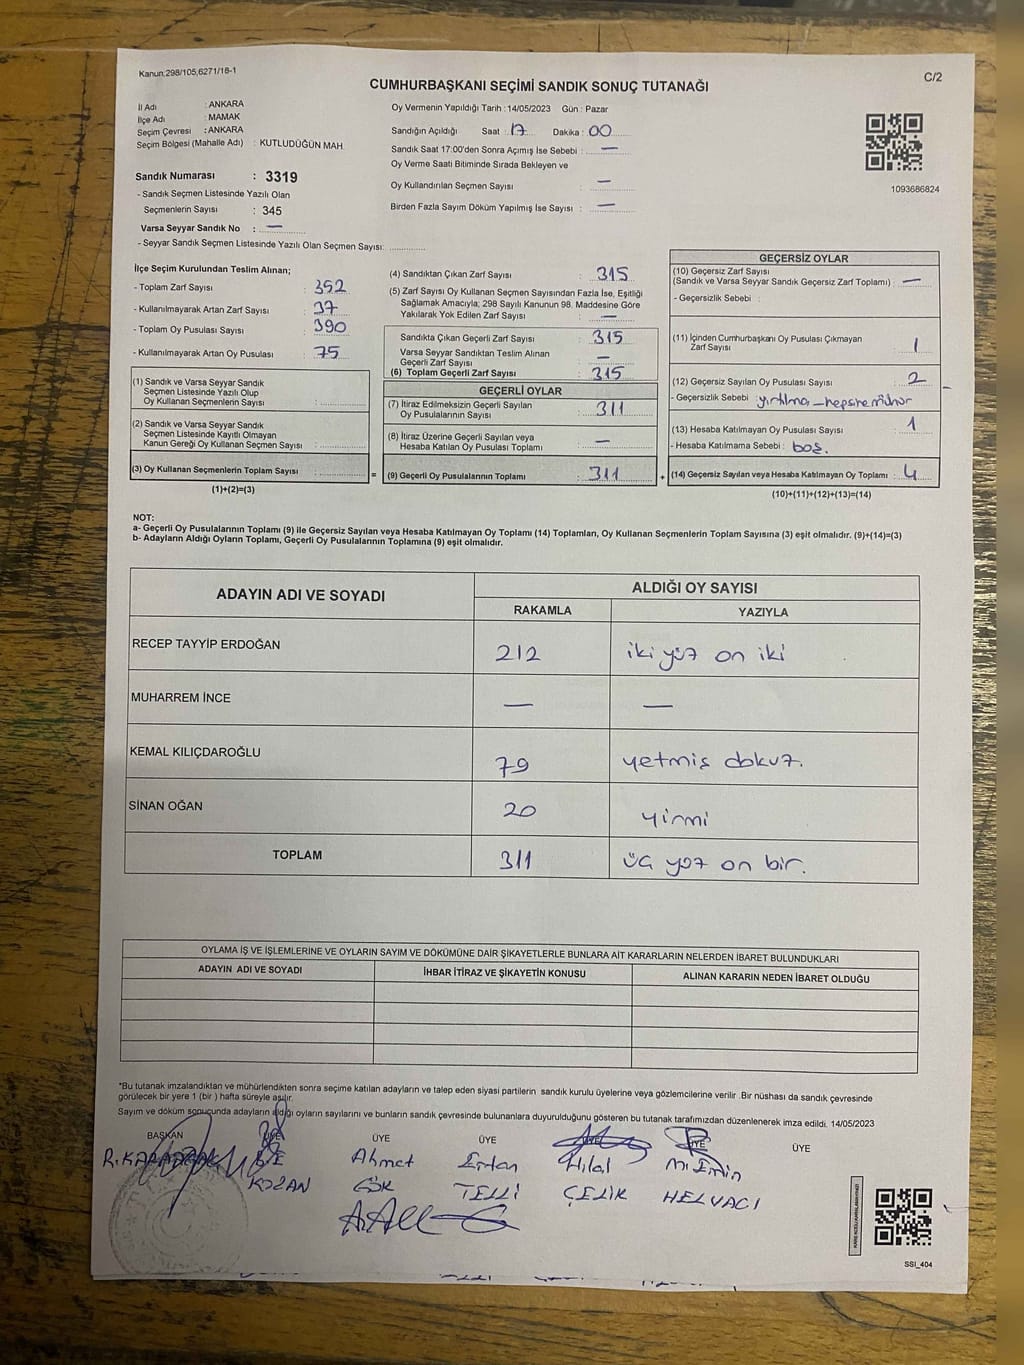 Kanun:298/105,6271/18-1
C/2
CUMHURBAŞKANI SEÇİMİ SANDIK SONUÇ TUTANAĞI
İl Adı : ANKARA
İlçe Adı : MAMAK
Seçim Çevresi : ANKARA
Seçim Bölgesi (Mahalle Adı) : KUTLUDÜĞÜN MAH.
Sandık Numarası : 3319
- Sandık Seçmen Listesinde Yazılı Olan
Seçmenlerin Sayısı : 345
Varsa Seyyar Sandık No : —
- Seyyar Sandık Seçmen Listesinde Yazılı Olan Seçmen Sayısı:
Oy Vermenin Yapıldığı Tarih : 14/05/2023 Gün : Pazar
Sandığın Açıldığı Saat : 17 Dakika : 00
Sandık Saat 17:00'den Sonra Açımış İse Sebebi : —
Oy Verme Saati Bitiminde Sırada Bekleyen ve
Oy Kullandırılan Seçmen Sayısı : —
Birden Fazla Sayım Döküm Yapılmış İse Sayısı : —
1093686824
İlçe Seçim Kurulundan Teslim Alınan;
- Toplam Zarf Sayısı : 352
- Kullanılmayarak Artan Zarf Sayısı : 37
- Toplam Oy Pusulası Sayısı : 390
- Kullanılmayarak Artan Oy Pusulası : 75
(1) Sandık ve Varsa Seyyar Sandık
Seçmen Listesinde Yazılı Olup
Oy Kullanan Seçmenlerin Sayısı :
(2) Sandık ve Varsa Seyyar Sandık
Seçmen Listesinde Kayıtlı Olmayan
Kanun Gereği Oy Kullanan Seçmen Sayısı :
(3) Oy Kullanan Seçmenlerin Toplam Sayısı : =
(1)+(2)=(3)
(4) Sandıktan Çıkan Zarf Sayısı : 315
(5) Zarf Sayısı Oy Kullanan Seçmen Sayısından Fazla İse, Eşitliği
Sağlamak Amacıyla; 298 Sayılı Kanunun 98. Maddesine Göre
Yakılarak Yok Edilen Zarf Sayısı : —
Sandıkta Çıkan Geçerli Zarf Sayısı : 315
Varsa Seyyar Sandıktan Teslim Alınan
Geçerli Zarf Sayısı : —
(6) Toplam Geçerli Zarf Sayısı : 315
GEÇERLİ OYLAR
(7) İtiraz Edilmeksizin Geçerli Sayılan
Oy Pusulalarının Sayısı : 311
(8) İtiraz Üzerine Geçerli Sayılan veya
Hesaba Katılan Oy Pusulası Toplamı : —
(9) Geçerli Oy Pusulalarının Toplamı : 311 +
GEÇERSİZ OYLAR
(10) Geçersiz Zarf Sayısı
(Sandık ve Varsa Seyyar Sandık Geçersiz Zarf Toplamı) : —
- Geçersizlik Sebebi :
(11) İçinden Cumhurbaşkanı Oy Pusulası Çıkmayan
Zarf Sayısı : 1
(12) Geçersiz Sayılan Oy Pusulası Sayısı : 2
- Geçersizlik Sebebi : yırtılma - hepsine mühür
(13) Hesaba Katılmayan Oy Pusulası Sayısı : 1
- Hesaba Katılmama Sebebi : boş.
(14) Geçersiz Sayılan veya Hesaba Katılmayan Oy Toplamı : 4
(10)+(11)+(12)+(13)=(14)
NOT:
a- Geçerli Oy Pusulalarının Toplamı (9) ile Geçersiz Sayılan veya Hesaba Katılmayan Oy Toplamı (14) Toplamları, Oy Kullanan Seçmenlerin Toplam Sayısına (3) eşit olmalıdır. (9)+(14)=(3)
b- Adayların Aldığı Oyların Toplamı, Geçerli Oy Pusulalarının Toplamına (9) eşit olmalıdır.
ADAYIN ADI VE SOYADI ALDIĞI OY SAYISI
RAKAMLA YAZIYLA
RECEP TAYYİP ERDOĞAN 212 iki yüz on iki
MUHARREM İNCE — —
KEMAL KILIÇDAROĞLU 79 yetmiş dokuz.
SİNAN OĞAN 20 yirmi
TOPLAM 311 üç yüz on bir.
OYLAMA İŞ VE İŞLEMLERİNE VE OYLARIN SAYIM VE DÖKÜMÜNE DAİR ŞİKAYETLERLE BUNLARA AİT KARARLARIN NELERDEN İBARET BULUNDUKLARI
ADAYIN ADI VE SOYADI İHBAR İTİRAZ VE ŞİKAYETİN KONUSU ALINAN KARARIN NEDEN İBARET OLDUĞU
*Bu tutanak imzalandıktan ve mühürlendikten sonra seçime katılan adayların ve talep eden siyasi partilerin sandık kurulu üyelerine veya gözlemcilerine verilir. Bir nüshası da sandık çevresinde
görülecek bir yere 1 (bir ) hafta süreyle asılır.
Sayım ve döküm sonucunda adayların aldığı oyların sayılarını ve bunların sandık çevresinde bulunanlara duyurulduğunu gösteren bu tutanak tarafımızdan düzenlenerek imza edildi. 14/05/2023
BAŞKAN ÜYE ÜYE ÜYE ÜYE ÜYE ÜYE
Ahmet Erdan Hilal M.Emin
KOZAN GÖK TELLİ ÇELİK HELVACI
SSI_404